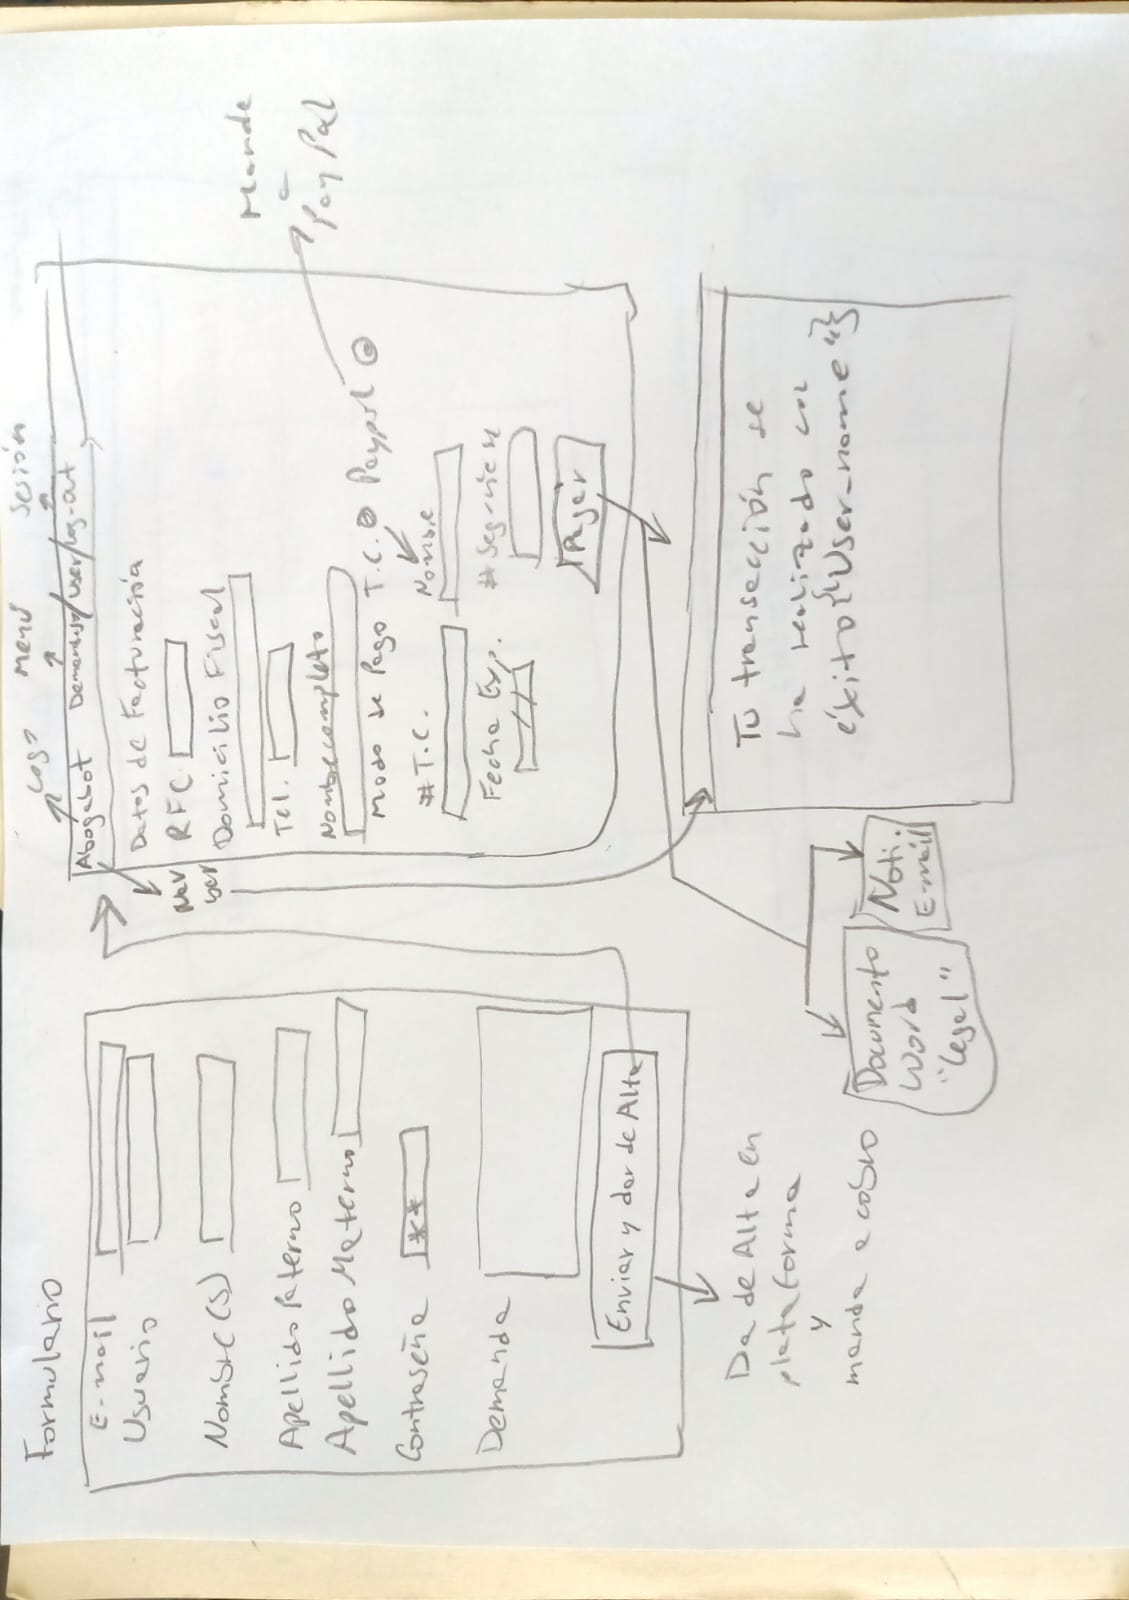 Formulario
E-mail
Usuario
Nombre(s)
Apellido Paterno
Apellido Materno
Contraseña **
Demanda
Enviar y dar de Alta
Da de Alta en
plataforma
y
manda a cobro
Logo Menú Sesión
Abogabot Demandas/User/Log-out
Nav
bar
Datos de Facturación
RFC
Domicilio Fiscal
Tel.
Nombre completo
Modo de Pago T.C. Paypal
Mande
a
PayPal
#T.C. Nombre
Fecha Exp. //
Pagar
Tu transacción se
ha realizado con
éxito {"User_name"}
Documento
Word
"Legal"
Noti.
E-mail